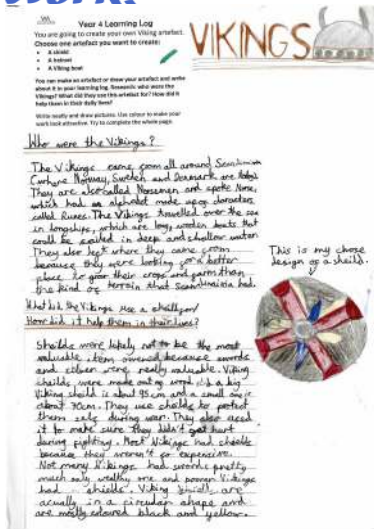 Year 4 Learning Log
You are going to create your own Viking artefact.
Choose one artefact you want to create:
• A shield
• A helmet
• A Viking boat
You can make an artefact or draw your artefact and write
about it in your learning log. Research who were the
Vikings? What did they use this artefact for? How did it
help them in their daily lives?
Write neatly and draw pictures. Use colour to make your
work look attractive. Try to complete the whole page.
VIKINGS
Who were the Vikings?
The Vikings came from all around Scandinavia
(where Norway, Sweden and Denmark are today).
They are also called Norsemen and spoke Norse,
which had an alphabet made up of characters
called Runes. The Vikings travelled over the sea
in longships, which are long, wooden boats that
could be sailed in deep and shallow water.
They also left where they came from
because they were looking for a better
place to grow their crops and farm than
the kind of terrain that Scandinavia had.
This is my chose
design of a sheild.
What did the Vikings use a sheild for/
How did it help them in their lives?
Sheilds were likely not to be the most
valuable item owned because swords
and silver were really valuable. Viking
sheilds were made out of wood a big
Viking sheild is about 95cm and a small one is
about 70cm. They use sheilds to protect
them selfs during war. They also used
it to make sure they didn't get hurt
during fighting. Most Vikings had sheilds
because they weren't so expensive.
Not many Vikings had swords pretty
much only wealthy one and poorer Vikings
had shields. Viking shields are
acually in a circular shape and
are mostly coloured black and yellow.